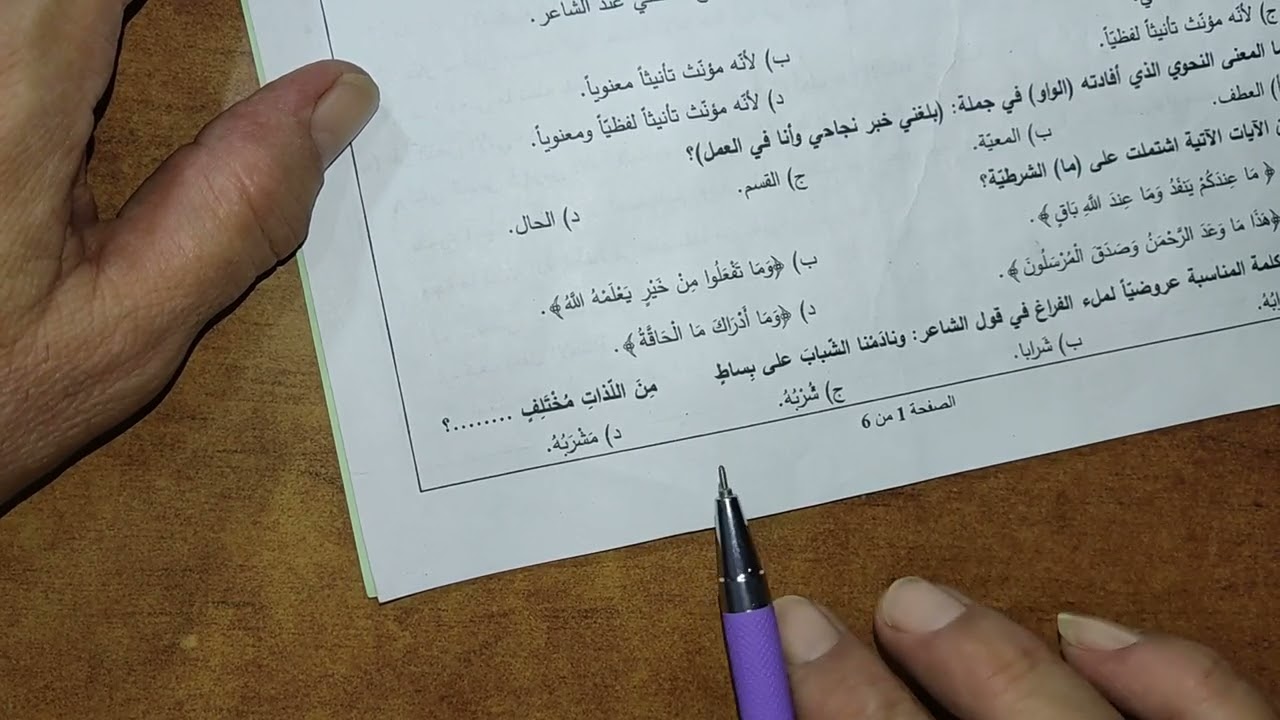 عند الشاعر.
ج) لأنّه مؤنّث تأنيثاً لفظيّاً.
ب) لأنّه مؤنّث تأنيثاً معنوياً.
د) لأنّه مؤنّث تأنيثاً لفظيّاً ومعنوياً.
المعنى النحوي الذي أفادته (الواو) في جملة: (بلغني خبر نجاحي وأنا في العمل)؟
العطف.
ب) المعيّة.
ج) القسم.
د) الحال.
الآيات الآتية اشتملت على (ما) الشرطيّة؟
﴿ مَا عِنْدَكُمْ يَنْفَدُ وَمَا عِنْدَ اللَّهِ بَاقٍ﴾.
ب) ﴿وَمَا تَفْعَلُوا مِنْ خَيْرٍ يَعْلَمْهُ اللَّهُ﴾.
﴿هَذَا مَا وَعَدَ الرَّحْمَنُ وَصَدَقَ الْمُرْسَلُونَ﴾.
د) ﴿وَمَا أَدْرَاكَ مَا الْحَاقَّةُ﴾.
المناسبة عروضيّاً لملء الفراغ في قول الشاعر: ونادَمنا الشّبابَ على بِساطٍ مِنَ اللّذاتِ مُخْتَلِفٍ ........؟
ب) شَرابا.
ج) شُرْبُهُ.
د) مَشْرَبُهُ.
الصفحة 1 من 6